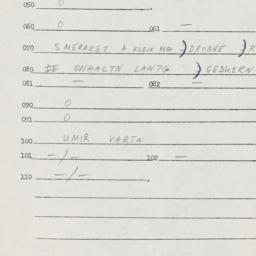 050 0
060 0 061 —
070 SMERAKET A KLEIN )DROBNE )R
080 ONHALTN )GEDUERN
081 — 082 —
090 0
091 0
100 UMIR VARTN
101 -/- 102 —
110 -/-